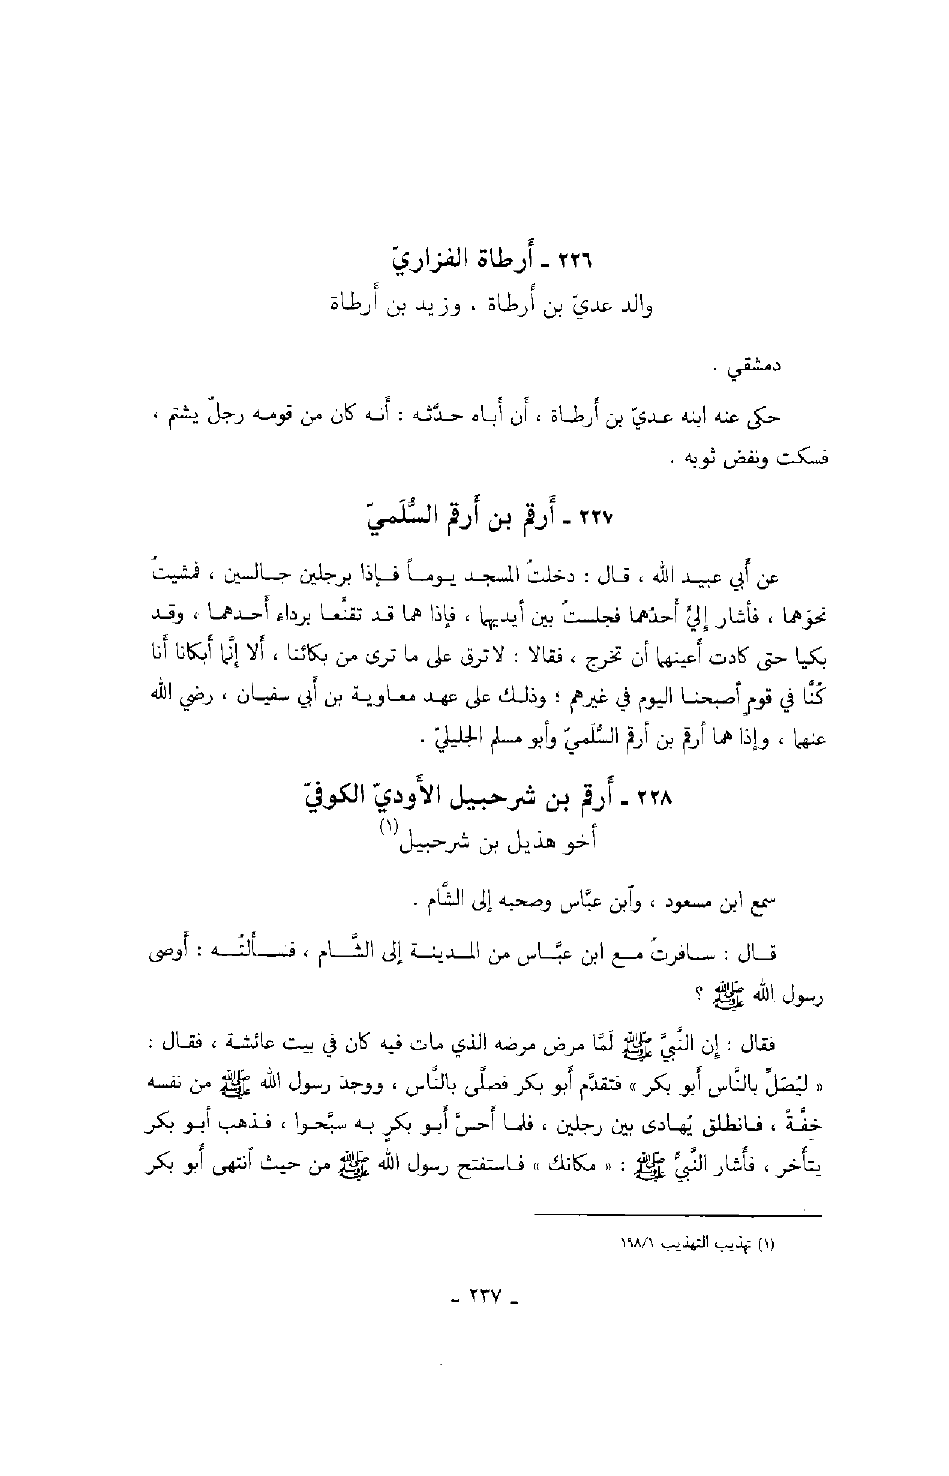 ٢٢٦ ـ أرطاة الفزاريّ
والد عديّ بن أرطاة ، وزيد بن أرطاة
دمشقي .
حكى عنه ابنه عديّ بن أرطاة ، أن أباه حدّثه : أنه كان من قومه رجلٌ يشتم ،
فسكت ونفض ثوبه .
٢٢٧ ـ أرقم بن أرقم السُّلَميّ
عن أبي عبيد الله ، قال : دخلتُ المسجد يوماً فإذا برجلين جالسين ، فمشيتُ
نحوَهما ، فأشار إليَّ أحدُهما فجلستُ بين أيديهما ، فإذا هما قد تقنَّعا برداء أحدهما ، وقد
بكيا حتى كادت أعينهما أن تخرج ، فقالا : لاترق على ما ترى من بكائنا ، ألا إنَّما أبكانا أنا
كنَّا في قومٍ أصبحنا اليوم في غيرهم ؛ وذلك على عهد معاوية بن أبي سفيان ، رضي الله
عنهما ، وإذا هما أرقم بن أرقم السُّلَميّ وأبو مسلم الجليليّ .
٢٢٨ ـ أرقم بن شرحبيل الأوديّ الكوفيّ
أخو هذيل بن شرحبيل(١)
سمع ابن مسعود ، وآبن عبَّاس وصحبه إلى الشَّام .
قال : سافرتُ مع ابن عبَّاس من المدينة إلى الشَّام ، فسألتُه : أوصى
رسول الله ﷺ ؟
فقال : إن النَّبيَّ ﷺ لَمَّا مرض مرضه الذي مات فيه كان في بيت عائشة ، فقال :
« ليُصَلِّ بالنَّاس أبو بكر » فتقدَّم أبو بكر فصلَّى بالنَّاس ، ووجد رسول الله ﷺ من نفسه
خفَّةً ، فانطلق يُهادى بين رجلين ، فلما أحسَّ أبو بكرٍ به سبَّحوا ، فذهب أبو بكر
يتأخر ، فأشار النَّبيُّ ﷺ : « مكانك » فاستفتح رسول الله ﷺ من حيث أنتهى أبو بكر
(١) تهذيب التهذيب ١٩٨/١
ـ ٢٣٧ ـ